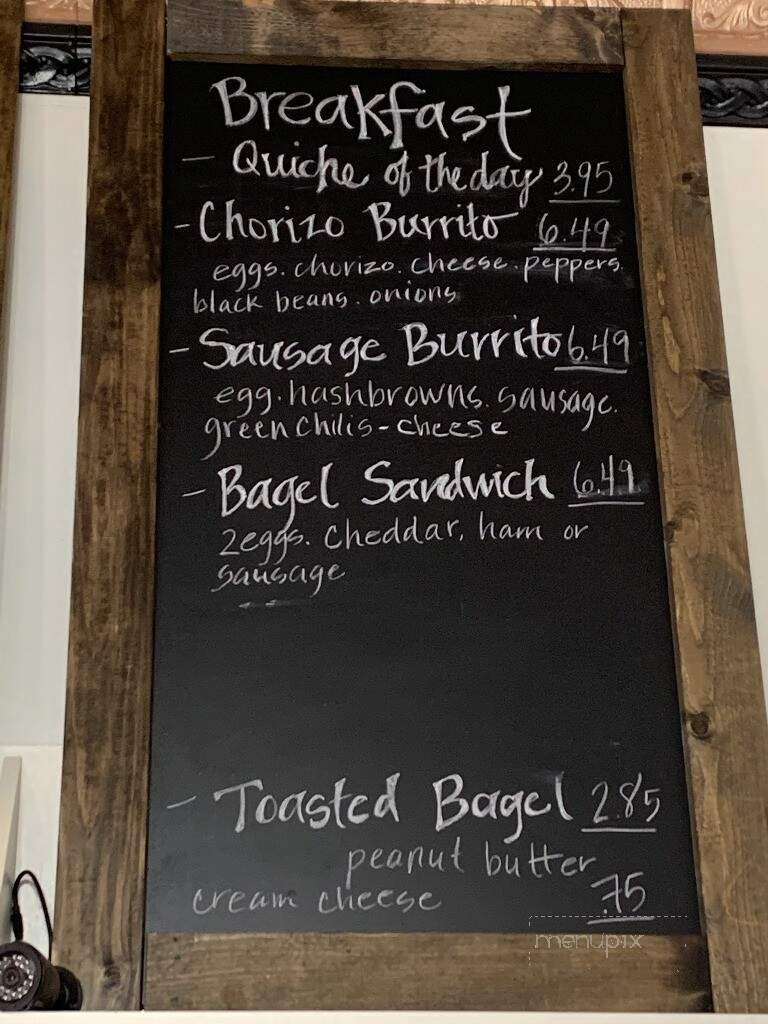 Breakfast
- Quiche of the day 3.95
- Chorizo Burrito 6.49
eggs. chorizo. cheese. peppers.
black beans. onions
- Sausage Burrito 6.49
egg. hashbrowns. sausage.
green chilis - cheese
- Bagel Sandwich 6.49
2 eggs. cheddar, ham or
sausage
- Toasted Bagel 2.85
peanut butter
cream cheese .75
menupix